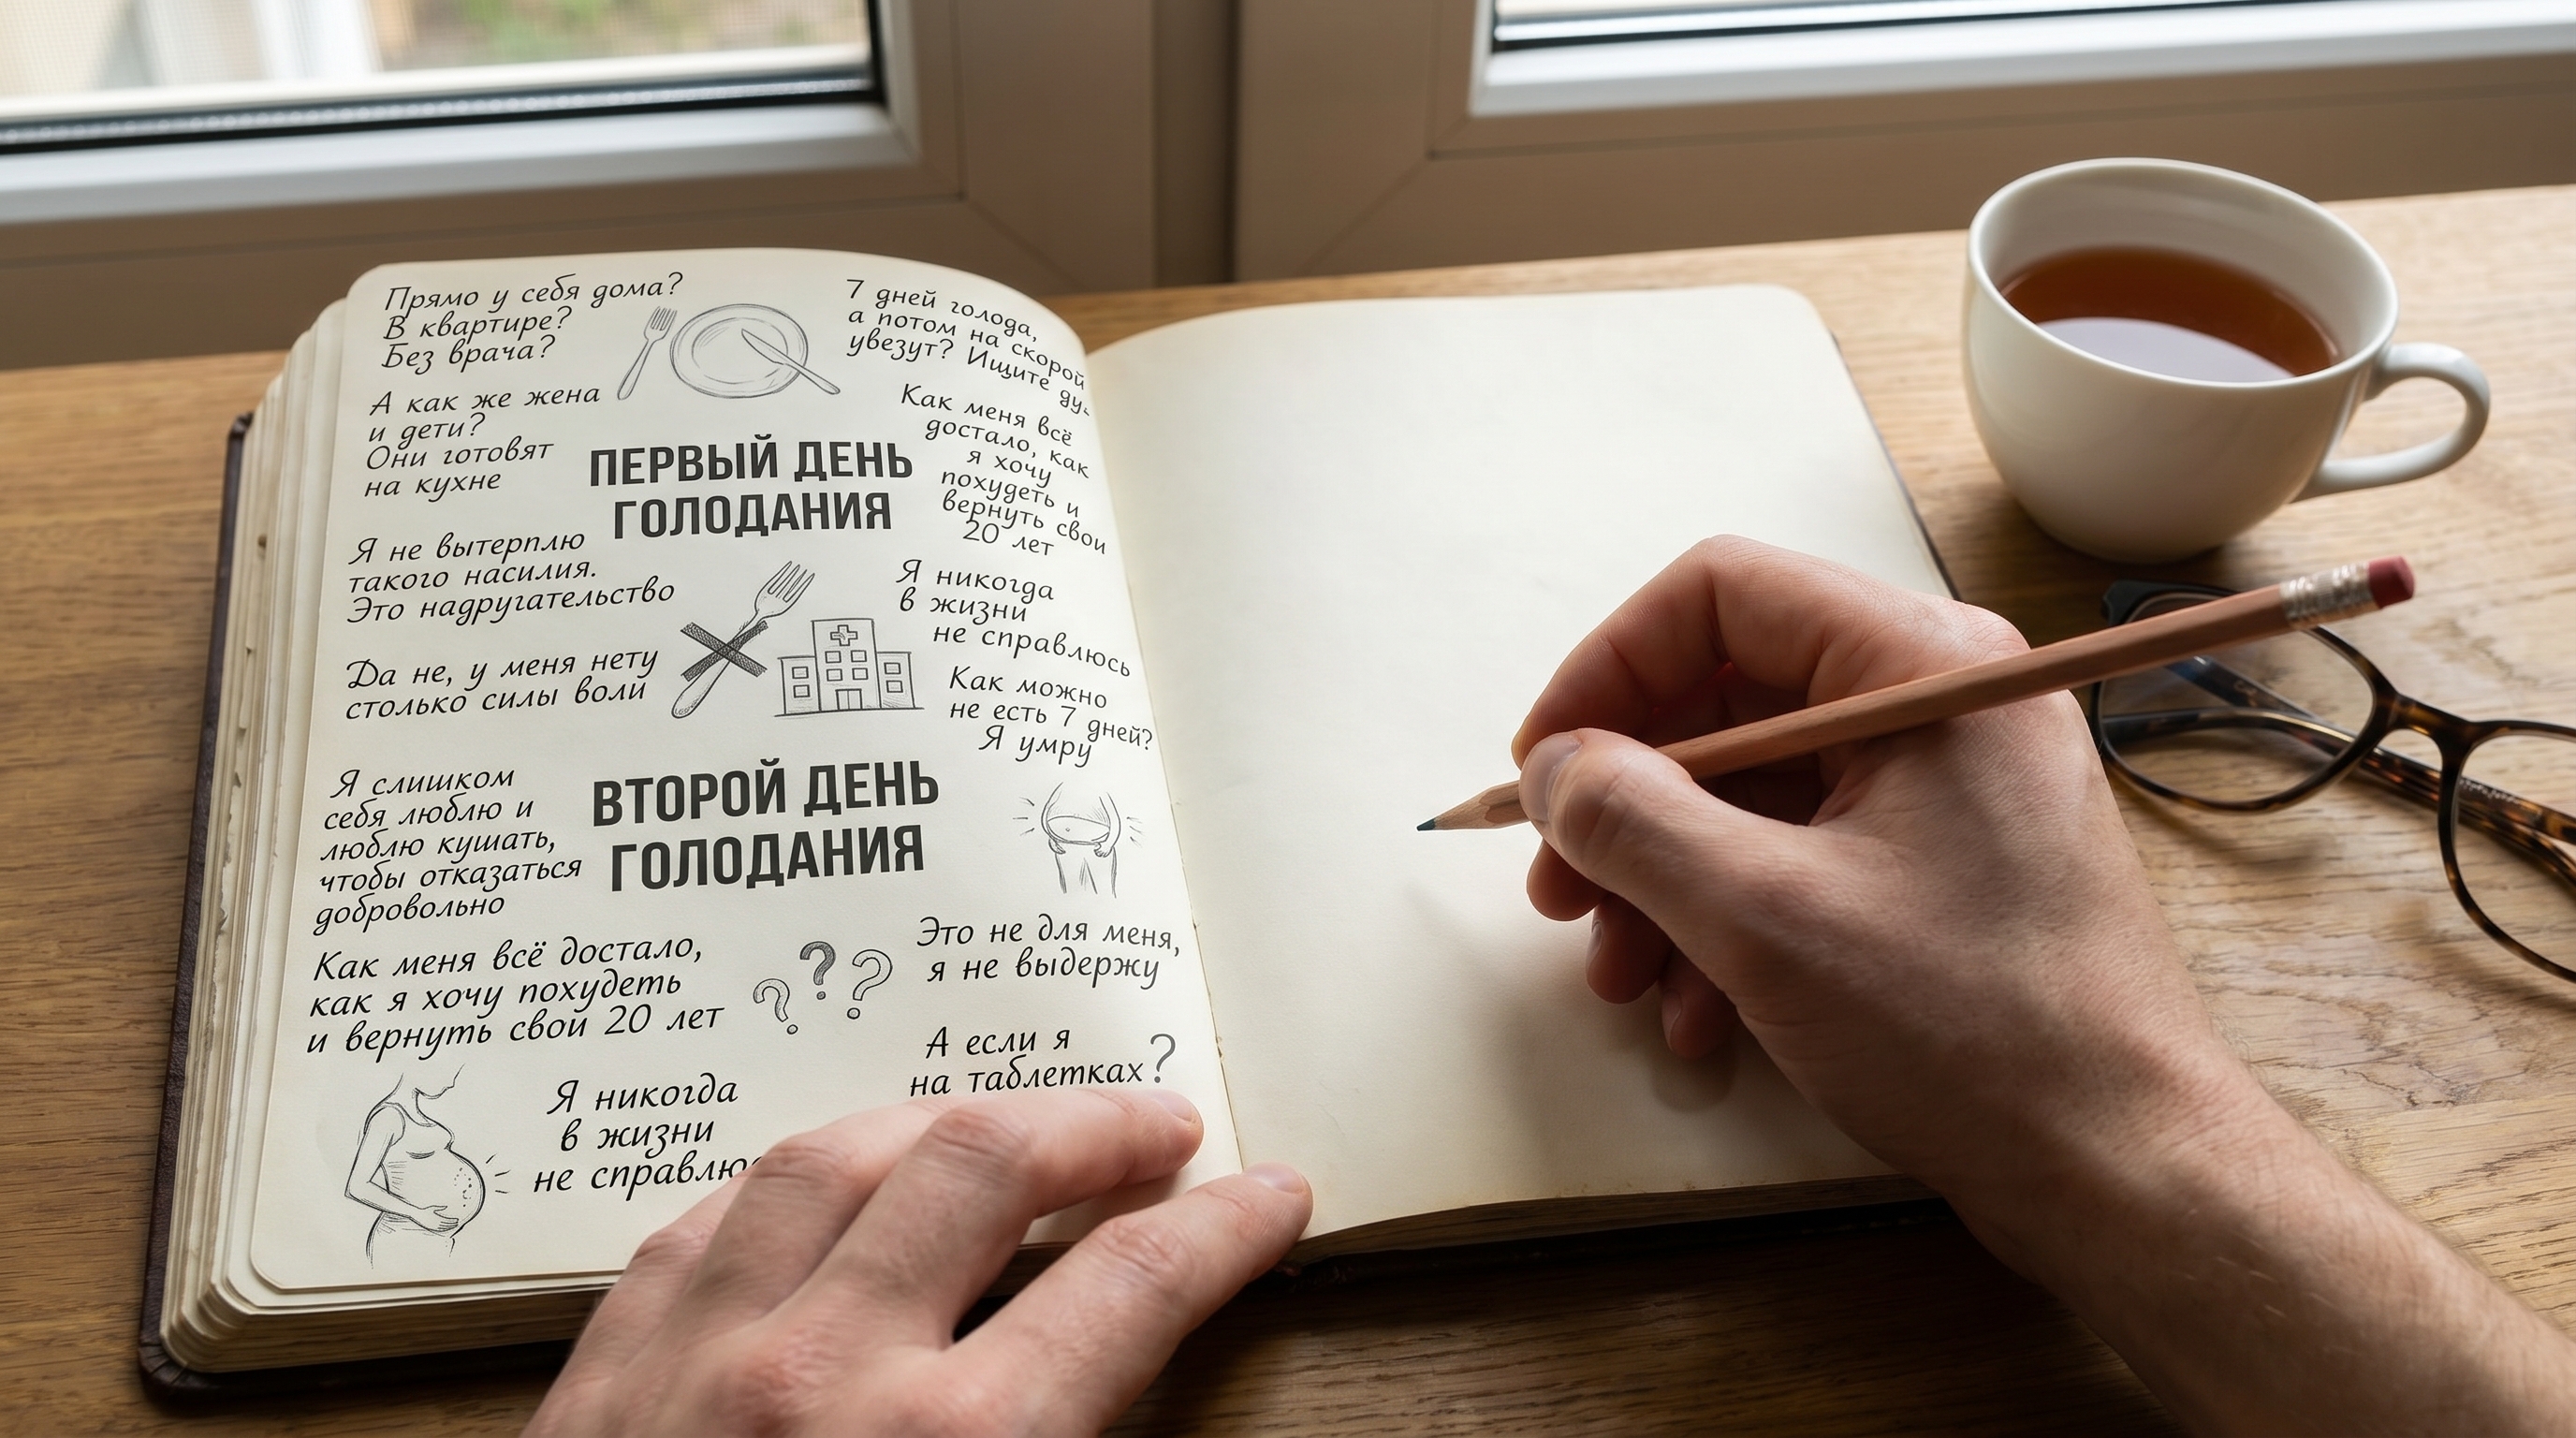 Прямо у себя дома?
В квартире?
Без врача?
А как же жена
и дети?
Они готовят
на кухне
7 дней голода,
а потом на скорой
увезут? Ищите
Как меня всё
достало, как
я хочу
похудеть и
вернуть свои
20 лет
ПЕРВЫЙ ДЕНЬ
ГОЛОДАНИЯ
Я не вытерплю
такого насилия.
Это надругательство
Я никогда
в жизни
не справлюсь
Да не, у меня нету
столько силы воли
Как можно
не есть 7 дней?
Я умру
ВТОРОЙ ДЕНЬ
ГОЛОДАНИЯ
Я слишком
себя люблю и
люблю кушать,
чтобы отказаться
добровольно
Как меня всё достало,
как я хочу похудеть
и вернуть свои 20 лет
? ? ?
Это не для меня,
я не выдержу
А если я
на таблетках?
Я никогда
в жизни
не